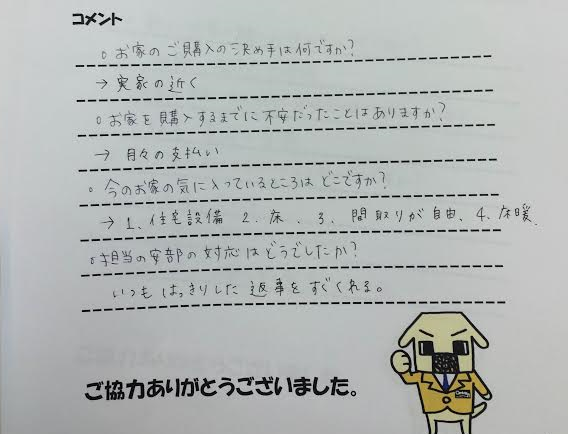 コメント
○お家のご購入の決め手は何ですか?
→実家の近く
○お家を購入するまでに不安だったことはありますか?
→月々の支払い
○今のお家の気に入っているところはどこですか?
→1、住宅設備 2、床、3、間取りが自由、4、床暖、
○担当の安部の対応はどうでしたか?
いつもはっきりした返事をすぐくれる。
ご協力ありがとうございました。